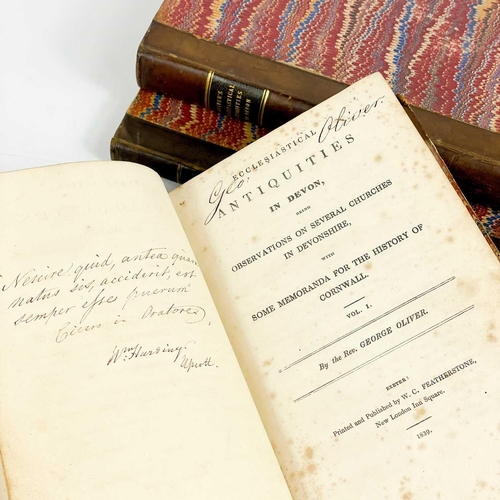 Nescire quid, antea quam
natus sis, acciderit, est
semper esse puerum
Cicero in Oratore
Wm Harding
Upcott.
Geo: Oliver.
ECCLESIASTICAL
ANTIQUITIES
IN DEVON,
BEING
OBSERVATIONS ON SEVERAL CHURCHES
IN DEVONSHIRE,
WITH
SOME MEMORANDA FOR THE HISTORY OF
CORNWALL.
VOL. I.
By the Rev. GEORGE OLIVER.
EXETER:
Printed and Published by W. C. FEATHERSTONE,
New London Inn Square.
1839.